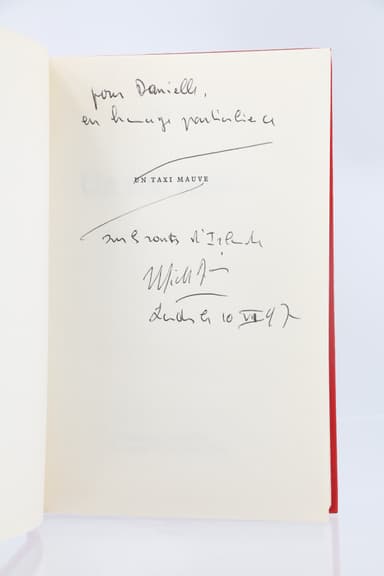 pour Danielle,
en hommage particulier ce
UN TAXI MAUVE
sur les routes d'Irlande
10 VII 97